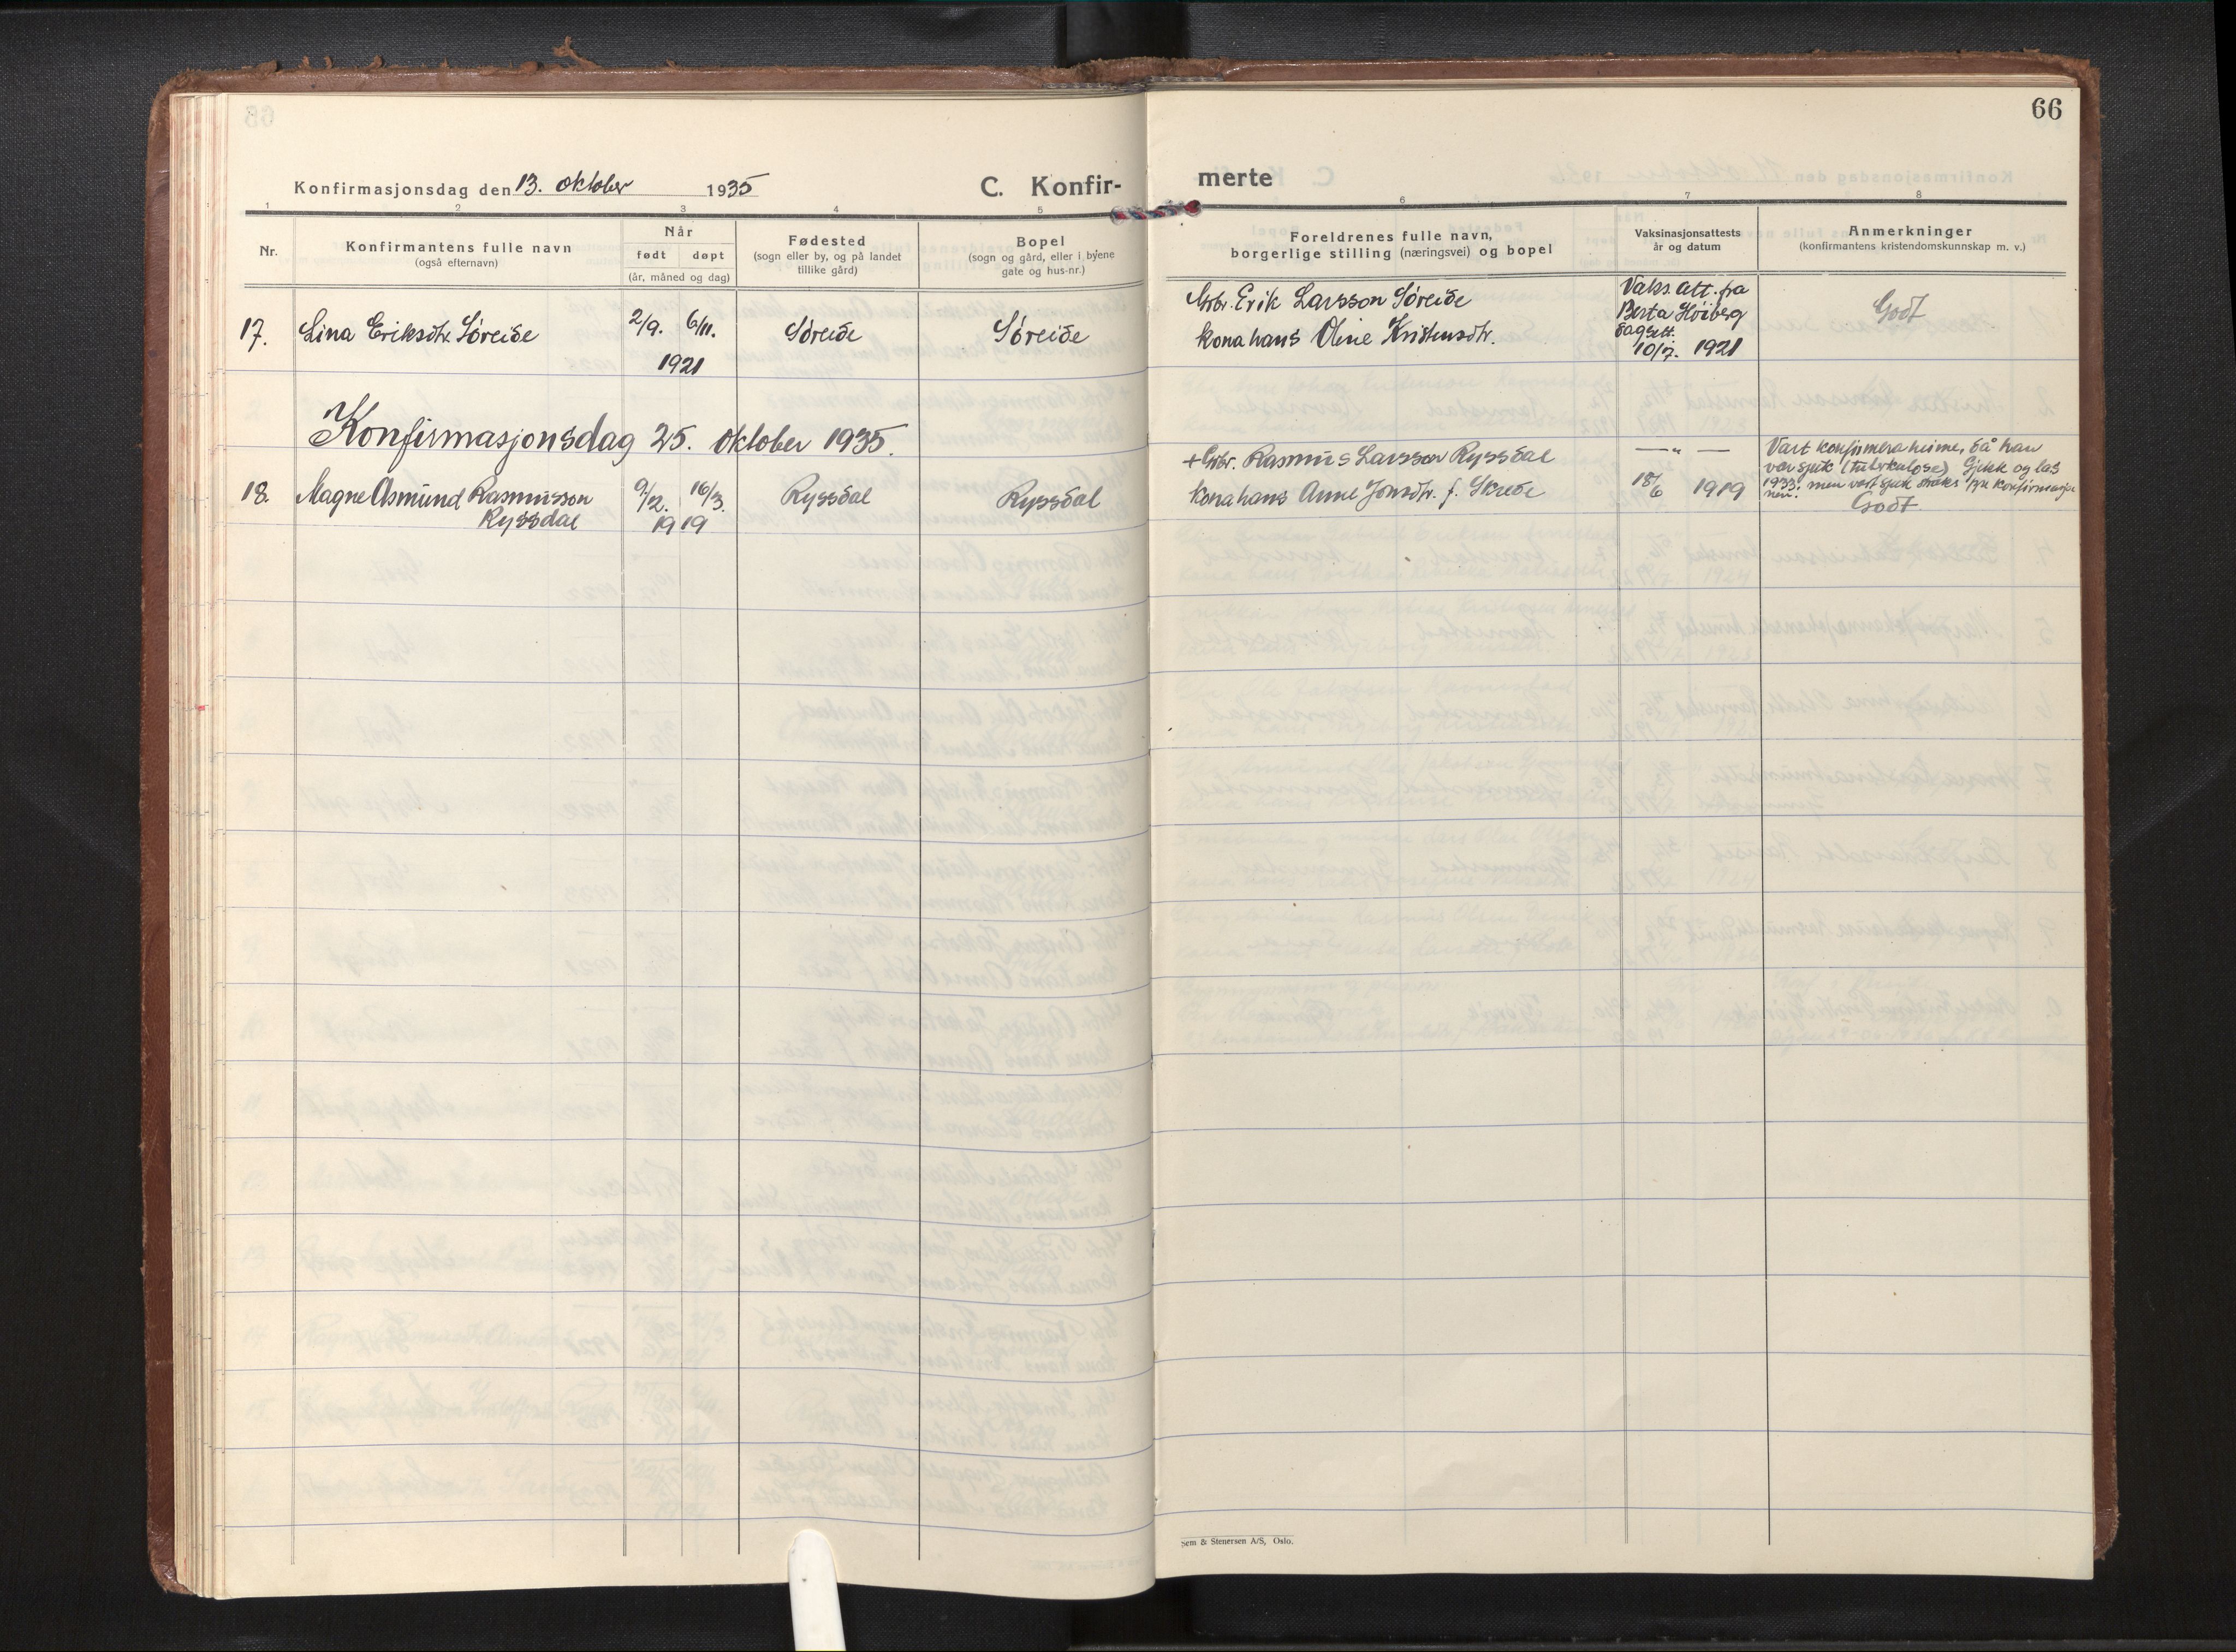 66
Konfirmasjonsdag den 13. oktober 1935
C. Konfir-
merte
1 2 3 4 5 6 7 8
Nr.
Konfirmantens fulle navn
(også efternavn)
Når
født døpt
(år, måned og dag)
Fødested
(sogn eller by, og på landet
tillike gård)
Bopel
(sogn og gård, eller i byene
gate og hus-nr.)
Foreldrenes fulle navn,
borgerlige stilling (næringsvei) og bopel
Vaksinasjonsattests
år og datum
Anmerkninger
(konfirmantens kristendomskunnskap m. v.)
17. Lina Eriksdtr. Søreide 2/9. 6/11. 1921 Søreide Søreide
Gbr. Erik Larsson Søreide
kona hans Oline Kristensdtr.
Vaks. att. fra
Berta Høiberg
dagsett.
10/7. 1921
Godt
Konfirmasjonsdag 25. oktober 1935.
18. Magne Asmund Rasmusson
Ryssdal
9/2. 16/3.
1919
Ryssdal
Ryssdal
+ Gbr. Rasmus Larsson Ryssdal
kona hans Anne Jonsdtr. f. Skrede
— " —
18/6 1919
Vart konfirmera heime, då han
var sjuk (tuberkulose) Gjekk og las
1933. men vart sjuk straks fyr konfirmasjo
nen.
Godt
Sem & Stenersen A/S, Oslo.